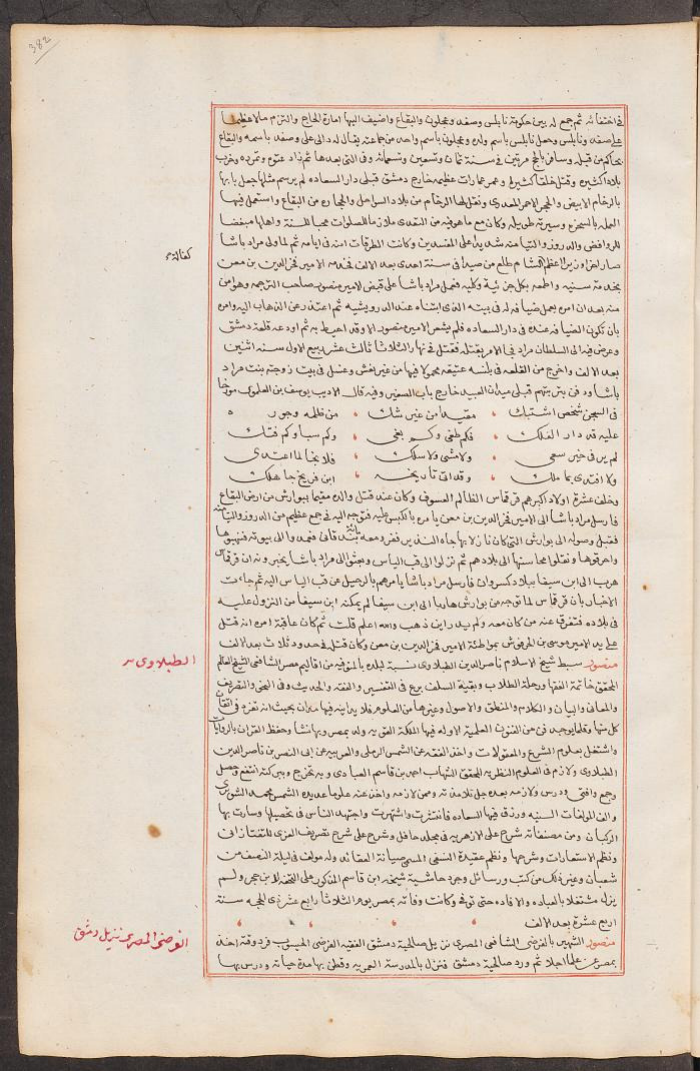 382
في اختفائه ثم جمع له بين حكومة نابلس وصفد وعجلون والبقاع واضيف اليها امارة الحاج والتزم مالا عظيما
على صفد ونابلس وجعل نابلس باسم ولده وعجلون باسم واحد من جماعته يقال له دالي علي وصفد باسمه والبقاع
بحاكم من قبله وسافر بالحج مرتين في سنة ثمان وتسعين وتسعمائة وفي التي بعدها ثم زاد عتوه وتمرده وخرب
بلادا كثيره وقتل خلقا كثيرا وعمر عمارات عظيمة خارج دمشق قبلي دار السعاده لم يرسم مثلها جعل بابها
بالرخام الابيض والحجر الاحمر المعدني ونقل لها الرخام من بلاد السواحل والحجاره من البقاع واستعمل فيها
العمله بالسخره وسيرته طويله وكان مع ما هو فيه من التعدي ملازما للصلوات محبا للسنة واهلها مبغضا
للروافض والدروز والتيامنه شديدا على المفسدين وكانت الطرقات امنه في ايامه ثم لما ولي مراد باشا
صار اخر وزيرا اعظم الشام طلع من صيدا في سنة احدى بعد الالف فخدمه الامير فخر الدين بن معن
بخدمة سنية واطمعه بكل جزئية وكليه فحمل مراد باشا على قبض الامير منصور صاحب الترجمه وهو امن
كفالة
منه بعد ان امره بعمل ضيافة له في بيته الذي ابتناه عند الدرويشيه ثم اعتذر عن الذهاب اليه وامره
بان تكون الضيافه عنده في دار السعاده فلم يشعر الامير منصور الا وقد احيط به ثم اودعه قلعة دمشق
وعرض فيه الى السلطان مراد في الامر بقتله فقتل في نهار الثلاثا ثالث عشر ربيع الاول سنه اثنين
بعد الالف واخرج من القلعه في بلسه عتيقه محمولا فيها من غير نعش وغسل في بيت زوجته بنت مراد
باشا ودفن بتربتهم قبلي ميدان العبيد خارج باب الصغير وفيه قال الاديب يوسف بن العلموي مؤرخا
في السجن شخص اشتبك • مقيد من غير شك • من ظلمه وجوره
عليه قد دار الفلك • فكم طغى وكم بغى • وكم سبا وكم فتك
لم ير في خير سعى • ولا مشى ولا سلك • فلا نجا لما اعتدى
ولا افتدى بما ملك • وقد اتى تاريخه • ابن فريخ جا هلك
وخلف عشرة اولاد اكبرهم قرقماس الظالم العسوف وكان عند قتل والده مقيما ببوارش من ارض البقاع
فارسل مراد باشا الى الامير فخر الدين بن معن يامره بالكبس عليه فتوجه اليه في جمع عظيم من الدروز والتيامنه
فقبل وصوله الى بوارش التي كان نازلا بها جاه النذير ففر ومعه قاني فعمد الى بيوته فنهبها
واحرقوها ونقلوا محاسنها الى بلادهم ثم نزلوا الى قب الياس وبعثوا الى مراد باشا يخبرونه ان قرقماس
هرب الى ابن سيفا ببلاد كسروان فارسل مراد باشا يامرهم بالرحيل عن قب الياس اليه ثم جاءت
الاخبار بان قرقماس لما توجه من بوارش هاربا الى ابن سيفا لم يمكنه ابن سيفا من النزول عليه
في بلاده فتفرق عنه من كان معه ولم يدر اين ذهب والله اعلم قلت ثم كان عاقبة امره انه قتل
على يد الامير موسى بن الحرفوش بمواطئة الامير فخر الدين بن معن وكان قتله في حدود ثلاث بعد الالف
الطبلاوي
منصور سبط شيخ الاسلام ناصر الدين الطبلاوي نسبة لبلده بالمنوفيه من اقاليم مصر الشافعي الشيخ العالم
المحقق خاتمة الفقها ورحلة الطلاب وبقية السلف برع في التفسير والفقه والحديث وفي النحو والتصريف
والمعاني والبيان والكلام والمنطق والاصول وغيرها من العلوم فلا يدانيه فيها مدان بحيث انه تفرد في اتقان
كل منها وقلما يوجد فن من الفنون العلمية الا وله فيها الملكة القويه ولد بمصر وبها نشا وحفظ القران بالروايات
واشتغل بعلوم الشرع والمعقولات واخذ الفقه عن الشمس الرملي والعربيه عن ابي النصر بن ناصر الدين
الطبلاوي ولازم في العلوم النظريه المحقق الشهاب احمد بن قاسم العبادي وبه تخرج وببركته انتفع وحصل
وجمع وافتى ودرس ولازمه بعده جل تلامذته وممن لازمه واخذ عنه علوما عديده الشمس محمد الشوبري
والف المولفات السنيه ورزق فيها السعاده فانتشرت واشتهرت واجتهد الناس في تحصيلها وسارت بها
الركبان ومن مصنفاته شرح على الازهريه في مجلد حافل وشرح على شرح تصريف العزي للتفتازاني
ونظم الاستعارات وشرحها ونظم عقيدة النسفي المسمى صيانة العقائد وله مولف في ليلة النصف من
شعبان وغير ذلك من كتب ورسائل وجرد حاشية شيخه ابن قاسم المذكور على التحفه لابن حجر ولم
يزل مشتغلا بالعباده والافاده حتى توفي وكانت وفاته بمصر يوم الثلاثا رابع عشر ذي الحجه سنة
اربع عشرة بعد الالف
الفرضي المصري نزيل دمشق
منصور الشهير بالفرضي الشافعي المصري نزيل صالحية دمشق الفقيه الفرضي الحيسوب فرد وقته اخذ
بمصر عن علما اجلا ثم ورد صالحية دمشق فنزل بالمدرسة العمريه وقطن بها مدة حياته ودرس بها